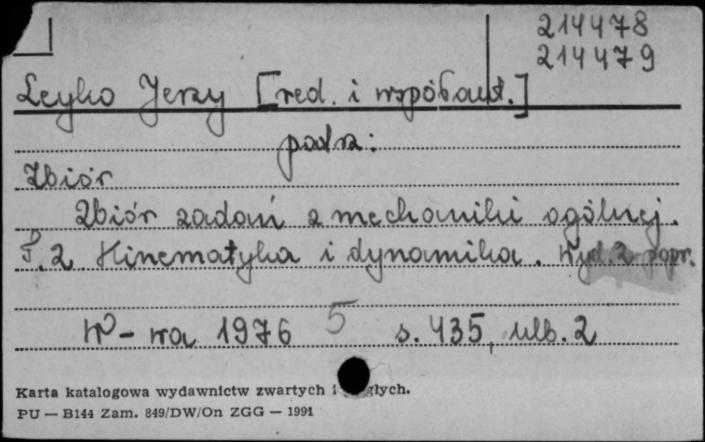 214478
214479
Leyko Jerzy [red. i współaut.]
patrz:
Zbiór
Zbiór zadań z mechaniki ogólnej.
T. 2 Kinematyka i dynamika. Wyd. 2 popr.
W-wa 1976 5 s. 435, nlb. 2
Karta katalogowa wydawnictw zwartych i
PU — B144 Zam. 849/DW/On ZGG — 1991